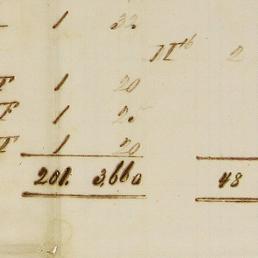 1 32
2
F 1 20
F 1 25
F 1 20
201. 3,660 48